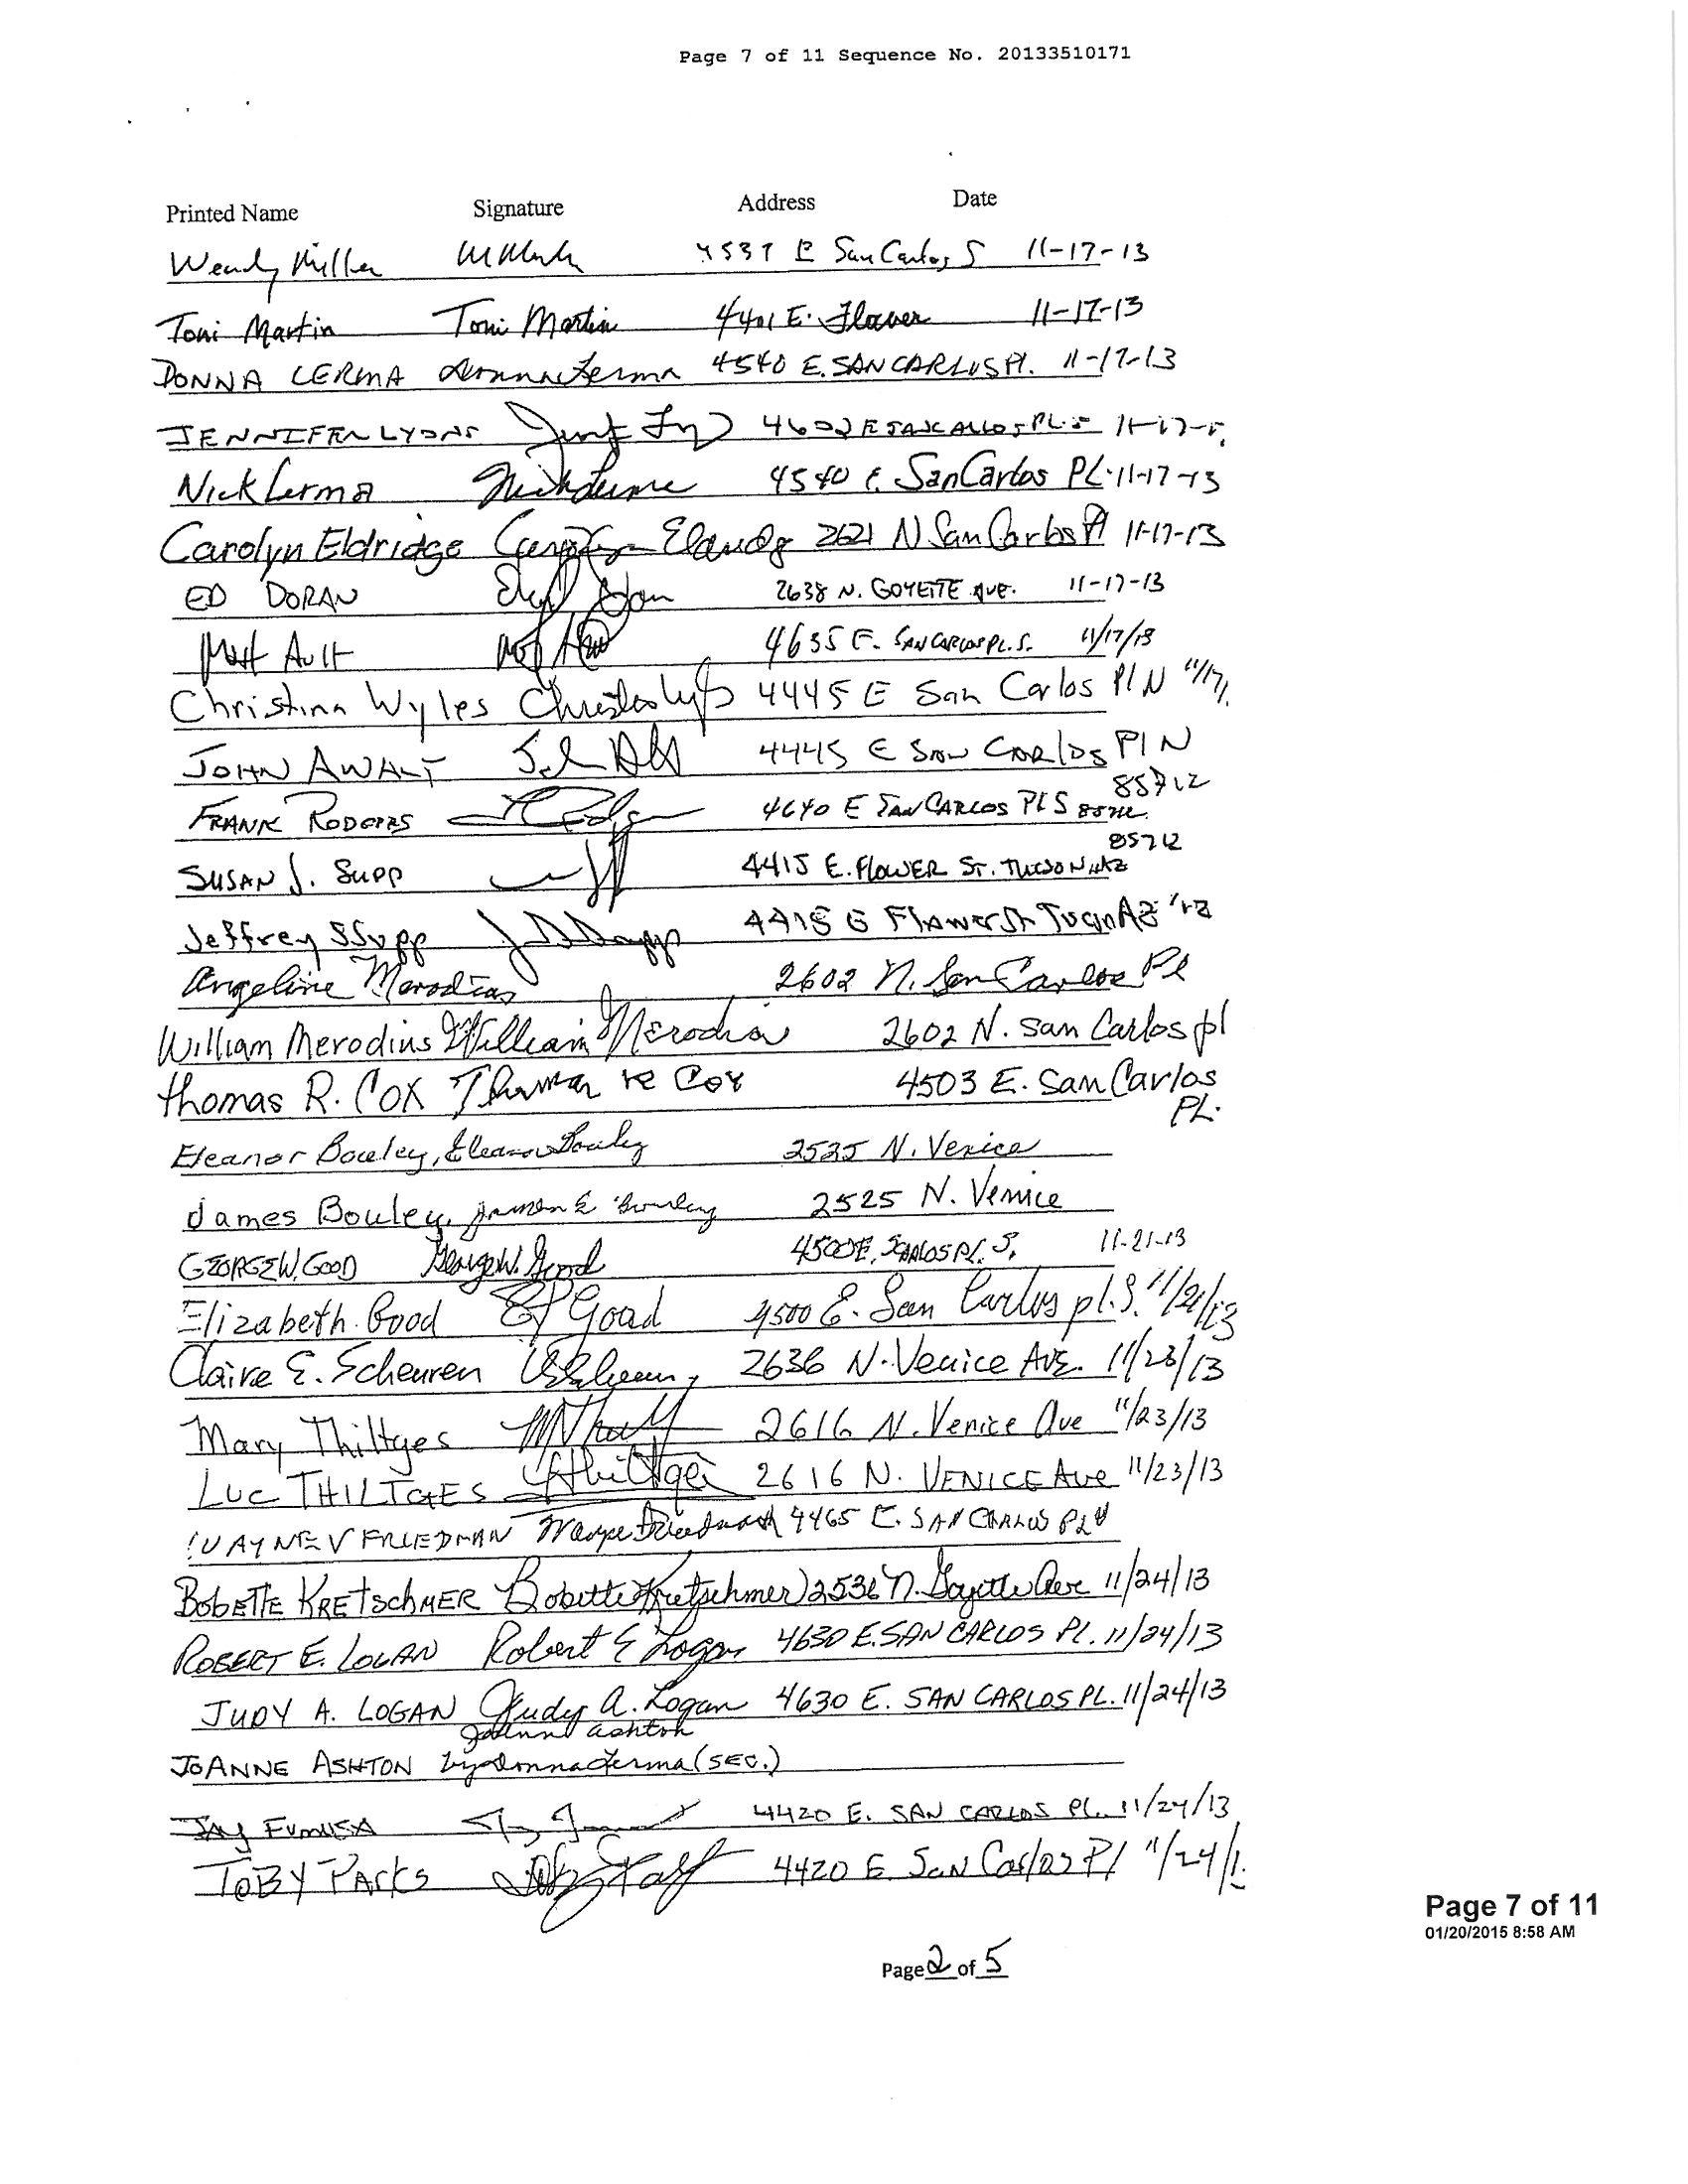 Page 7 of 11 Sequence No. 20133510171
Printed Name Signature Address Date
Wendy Miller 4537 E San Carlos S 11-17-13
Toni Martin Toni Martin 4401 E. Flower 11-17-13
DONNA LERMA Donna Lerma 4540 E. SAN CARLOS Pl. 11-17-13
JENNIFER LYONS 4602 E SAN CARLOS PL. S 11-17-
Nick Lerma Nick Lerma 4540 E. San Carlos PL. 11-17-13
Carolyn Eldridge 2621 N San Carlos Pl 11-17-13
ED DORAN 2638 N. GOYETTE AVE. 11-17-13
Matt Ault 4635 E. SAN CARLOS PL. S. 11/17/13
Christina Wyles 4445 E San Carlos Pl N 11/17/
JOHN AWALT 4445 E SAN CARLOS Pl N
85712
FRANK RODGERS 4640 E SAN CARLOS PL S 85712
85712
SUSAN J. SUPP 4415 E. FLOWER ST. TUCSON, AZ
Jeffrey S Supp 4415 E Flower St Tucson AZ '12
Angeline Merodias 2602 N. San Carlos Pl
William Merodias William Merodias 2602 N. San Carlos pl
thomas R. Cox Thomas R Cox 4503 E. San Carlos
PL.
Eleanor Bouley, Eleanor Bouley 2525 N. Venice
James Bouley, James E Bouley 2525 N. Venice
GEORGE W. GOOD George W. Good 4500 E. S CARLOS PL. S. 11-21-13
Elizabeth Good Good 4500 E. San Carlos pl. S. 11/21/13
Claire E. Scheuren 2636 N. Venice Ave. 11/23/13
Mary Thiltges 2616 N. Venice Ave 11/23/13
LUC THILTGES Thiltges 2616 N. VENICE Ave 11/23/13
WAYNE V FRIEDMAN Wayne Friedman 4465 E. SAN CARLOS PL N
BobETTE KRETschMER Bobette Kretschmer 2536 N. Goyette Ave 11/24/13
ROBERT E. LOGAN Robert E Logan 4630 E. SAN CARLOS PL. 11/24/13
JUDY A. LOGAN Judy A. Logan 4630 E. SAN CARLOS PL. 11/24/13
Joanne Ashton
JOANNE ASHTON by Donna Lerma (SEC.)
JAY 4420 E. SAN CARLOS PL. 11/24/13
TOBY PARKS 4420 E San Carlos Pl 11/24/1
Page 7 of 11
01/20/2015 8:58 AM
Page 2 of 5